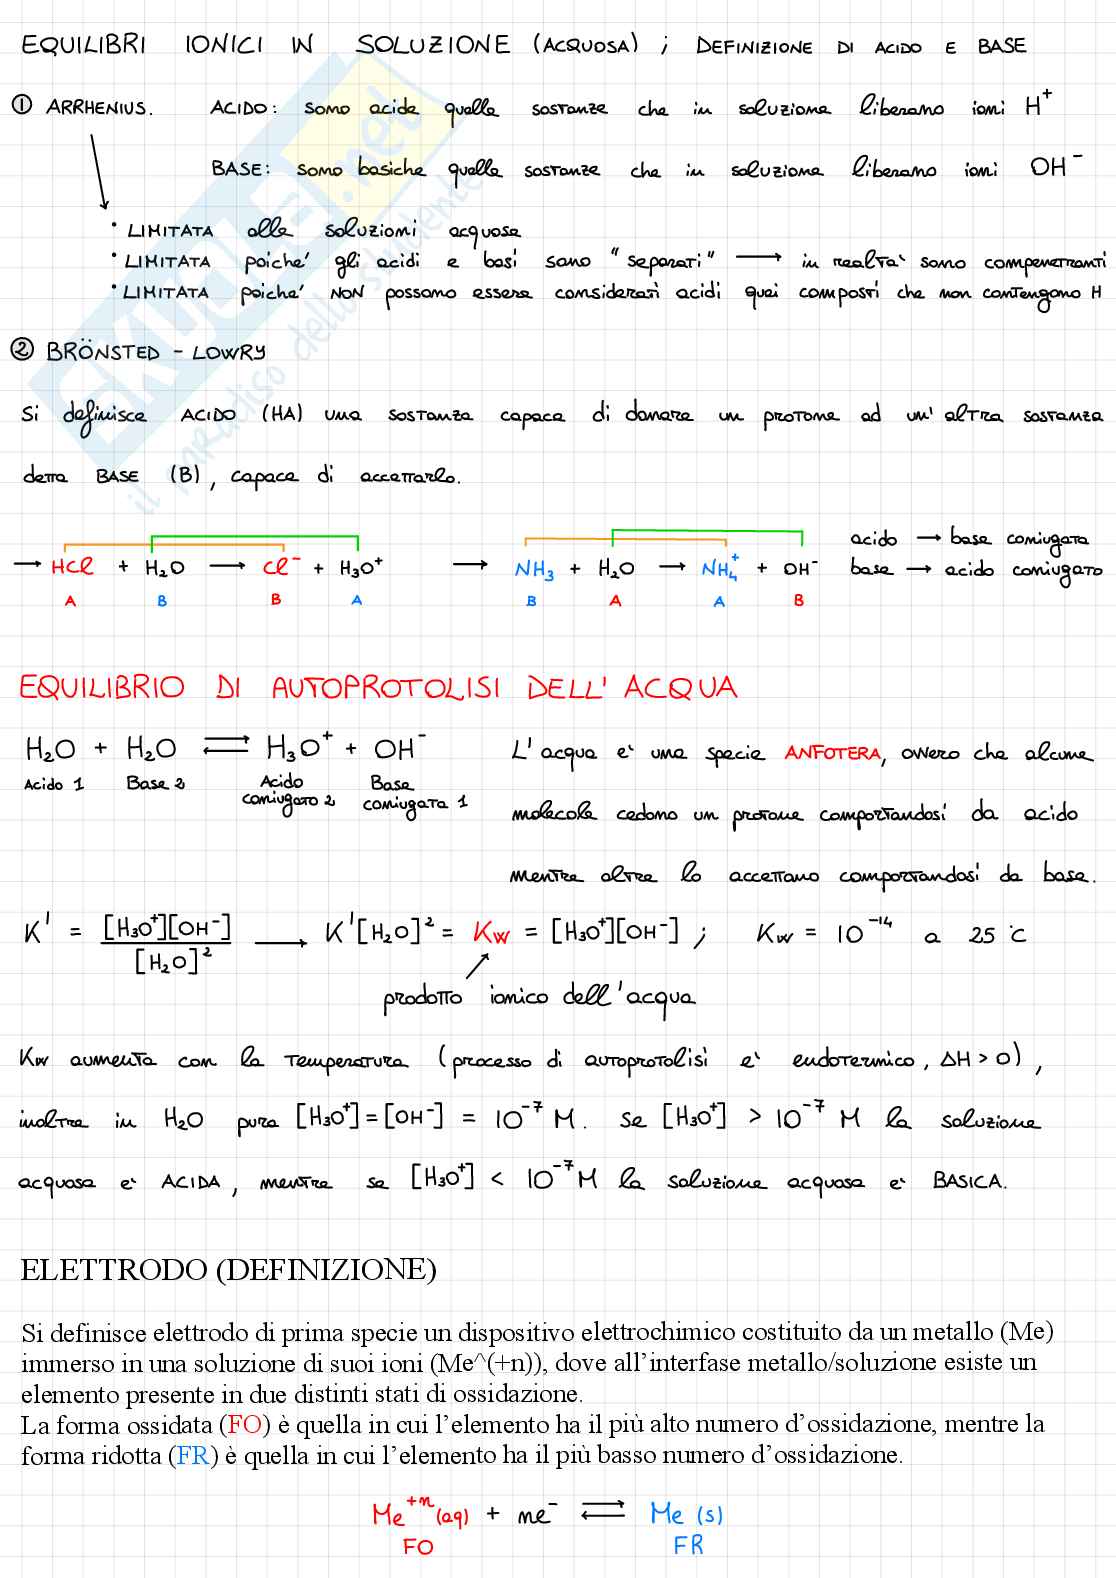 EQUILIBRI IONICI IN SOLUZIONE (ACQUOSA) ; DEFINIZIONE DI ACIDO E BASE
① ARRHENIUS. ACIDO: sono acide quelle sostanze che in soluzione liberano ioni H⁺
BASE: sono basiche quelle sostanze che in soluzione liberano ioni OH⁻
• LIMITATA alle soluzioni acquose
• LIMITATA poiche' gli acidi e basi sono "separati" → in realta' sono compenetranti
• LIMITATA poiche' NON possono essere considerati acidi quei composti che non contengono H
② BRÖNSTED - LOWRY
Si definisce ACIDO (HA) una sostanza capace di donare un protone ad un'altra sostanza
detta BASE (B), capace di accettarlo.
acido → base coniugata
→ HCl + H₂O → Cl⁻ + H₃O⁺ → NH₃ + H₂O → NH₄⁺ + OH⁻ base → acido coniugato
A B B A B A A B
EQUILIBRIO DI AUTOPROTOLISI DELL'ACQUA
H₂O + H₂O ⇌ H₃O⁺ + OH⁻ L'acqua e' una specie ANFOTERA, ovvero che alcune
Acido 1 Base 2 Acido coniugato 2 Base coniugata 1
molecole cedono un protone comportandosi da acido
mentre altre lo accettano comportandosi da base.
K' = [H₃O⁺][OH⁻] / [H₂O]² → K'[H₂O]² = Kw = [H₃O⁺][OH⁻] ; Kw = 10⁻¹⁴ a 25 °C
prodotto ionico dell'acqua
Kw aumenta con la temperatura (processo di autoprotolisi e' endotermico, ΔH > 0),
inoltre in H₂O pura [H₃O⁺] = [OH⁻] = 10⁻⁷ M. se [H₃O⁺] > 10⁻⁷ M la soluzione
acquosa e' ACIDA, mentre se [H₃O⁺] < 10⁻⁷ M la soluzione acquosa e' BASICA.
ELETTRODO (DEFINIZIONE)
Si definisce elettrodo di prima specie un dispositivo elettrochimico costituito da un metallo (Me)
immerso in una soluzione di suoi ioni (Me^(+n)), dove all'interfase metallo/soluzione esiste un
elemento presente in due distinti stati di ossidazione.
La forma ossidata (FO) è quella in cui l'elemento ha il più alto numero d'ossidazione, mentre la
forma ridotta (FR) è quella in cui l'elemento ha il più basso numero d'ossidazione.
Me⁺ⁿ (aq) + ne⁻ ⇌ Me (s)
FO FR
SKUOLA.net
il paradiso dello studente